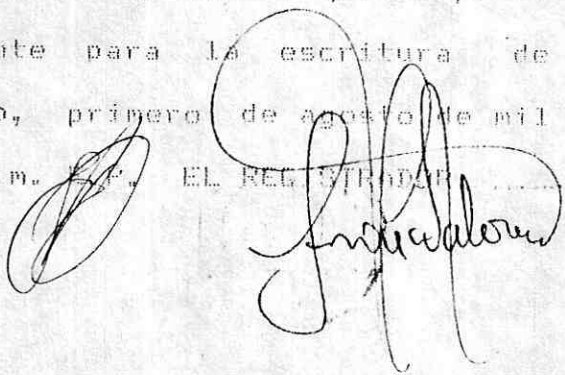 nte para la escritura de
o, primero de agosto de mil
m. EL REGISTRADOR ......